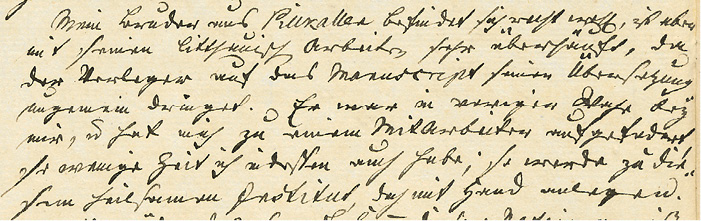 Mein Bruder aus Pillkallen befindet sich recht wohl, ist aber
mit seinen litthauisch Arbeiten sehr überhäuft, da
der Verleger auf das Manuscript seiner Übersetzung
ungemein dringet. Er war in voriger Woche bey
mir, u hat mich zu einem Mitarbeiter aufgefodert
So wenige Zeit ich indessen auch habe, so werde zu die=
sem heilsamen Institut, doch mit Hand anlegen.